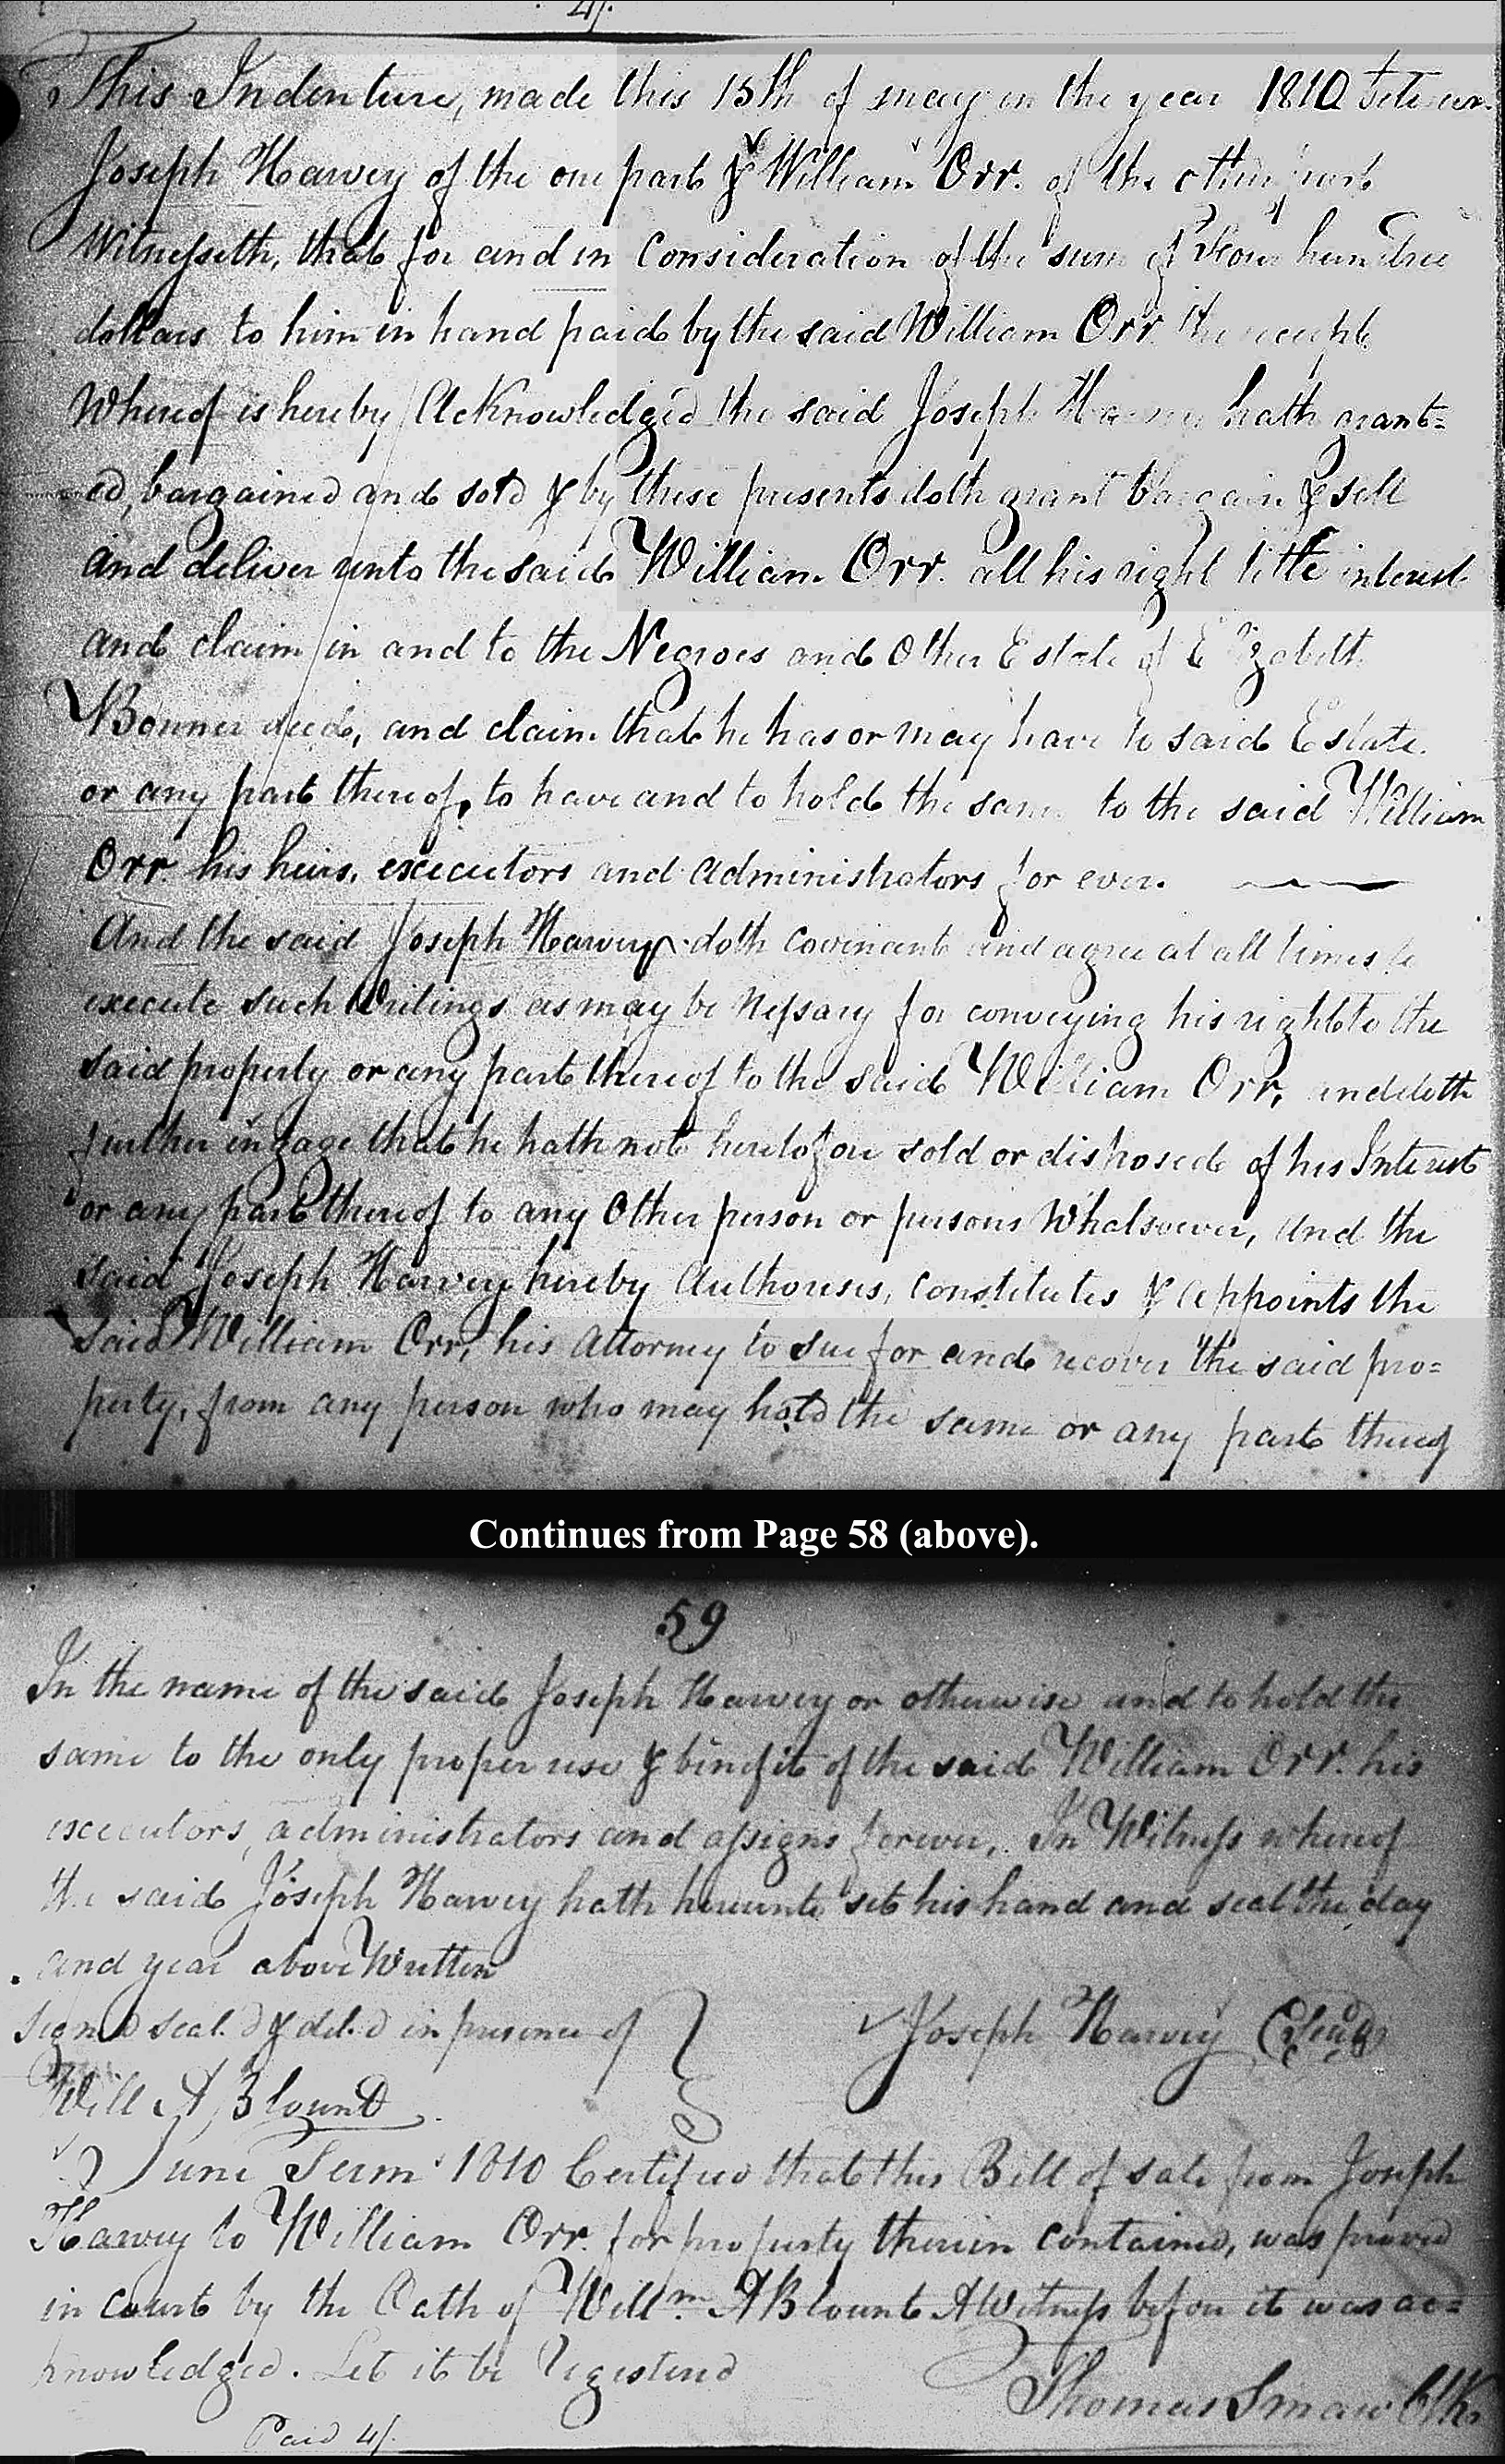 4/.
This Indenture, made this 15th of may in the year 1810 between
Joseph Harvey of the one part & William Orr. of the other part
Witnesseth, that for and in Consideration of the sum of Four hundred
dollars to him in hand paid by the said William Orr. the receipt
Whereof is hereby Acknowledged the said Joseph Harvey hath grant=
ed, bargained and sold & by these presents doth grant bargain & sell
and deliver unto the said William Orr. all his right title interest
and claim in and to the Negroes and Other Estate of Elizabeth
Bonner decd, and claim that he has or may have to said Estate.
or any part thereof, to have and to hold the same to the said William
Orr. his heirs, executors and administrators for ever.
And the said Joseph Harvey doth covenant and agree at all times to
execute such Writings as may be Nessary for conveying his right to the
said property or any part thereof to the said William Orr, and doth
further ingage that he hath not heretofore sold or disposed of his Interest
or any part thereof to any Other person or persons Whatsoever, and the
said Joseph Harvey hereby Authorises, constitutes & appoints the
said William Orr, his attorney to sue for and recover the said pro=
perty, from any person who may hold the same or any part thereof
Continues from Page 58 (above).
59
In the name of the said Joseph Harvey or otherwise and to hold the
same to the only proper use & benefit of the said William Orr. his
executors, administrators and assigns forever, In Witness whereof
the said Joseph Harvey hath hereunto set his hand and seal the day
and year above Written
signd seal.d & deld in presence of Joseph Harvey (Seal)
Will A, Blount
June Term 1810 Certifies that this Bill of sale from Joseph
Harvey to William Orr. for property therein contained, was proved
in court by the Oath of Willm. A Blount A Witness before it was ac=
knowledged. Let it be Registerd
Thomas Smaw Clk.
Paid 4/.